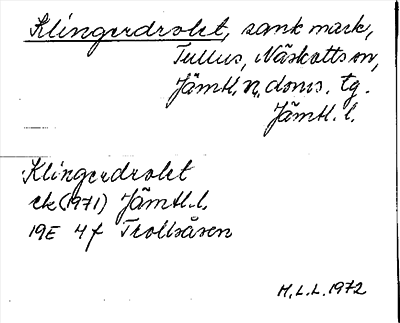 Klingerdroket, sank mark,
Tullus, Näskotts sn,
Jämtl. n. doms. tg.
Jämtl. l.
Klingerdroket
ek (1971) Jämtl. l.
19E 4f Trollsåsen
H.L.L. 1972